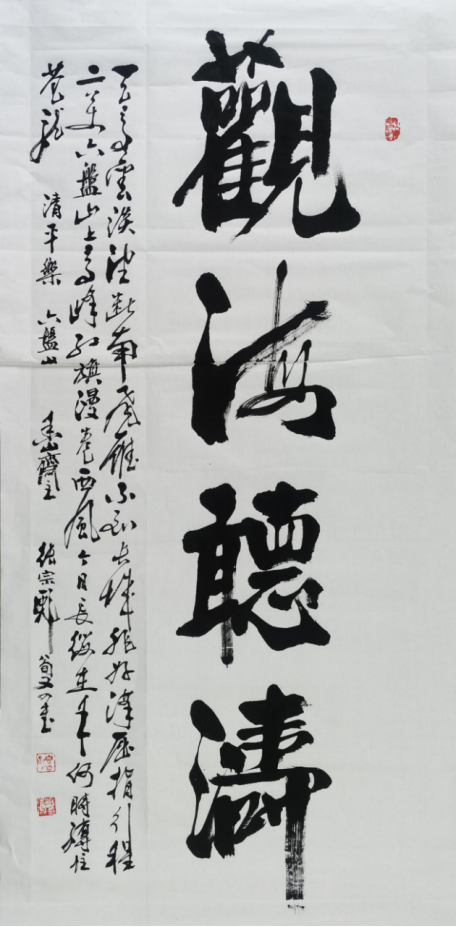 觀海聽濤
天高雲淡望斷南飛雁不到长城非好漢屈指行程
二萬六盤山上高峰红旗漫卷西風今日長缨在手何時縛住
蒼龍 清平樂 六盤山 齋主 張宗 書